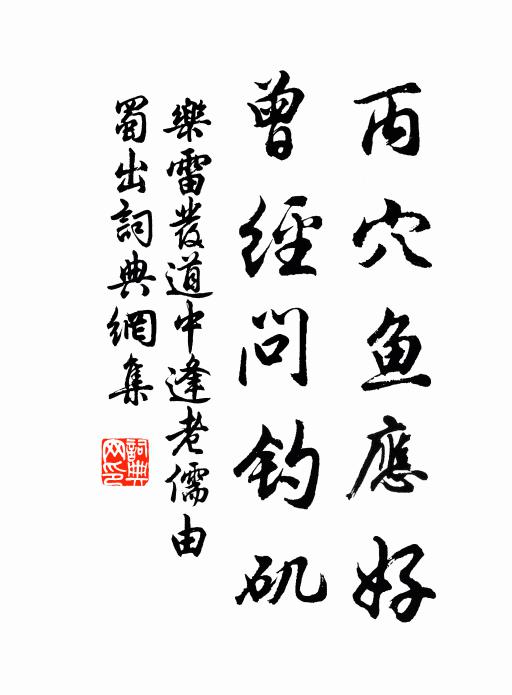 丙穴鱼應好
曾經问钓矶
樂雷發道中逢老儒由
蜀出詞典網集
詞典网印